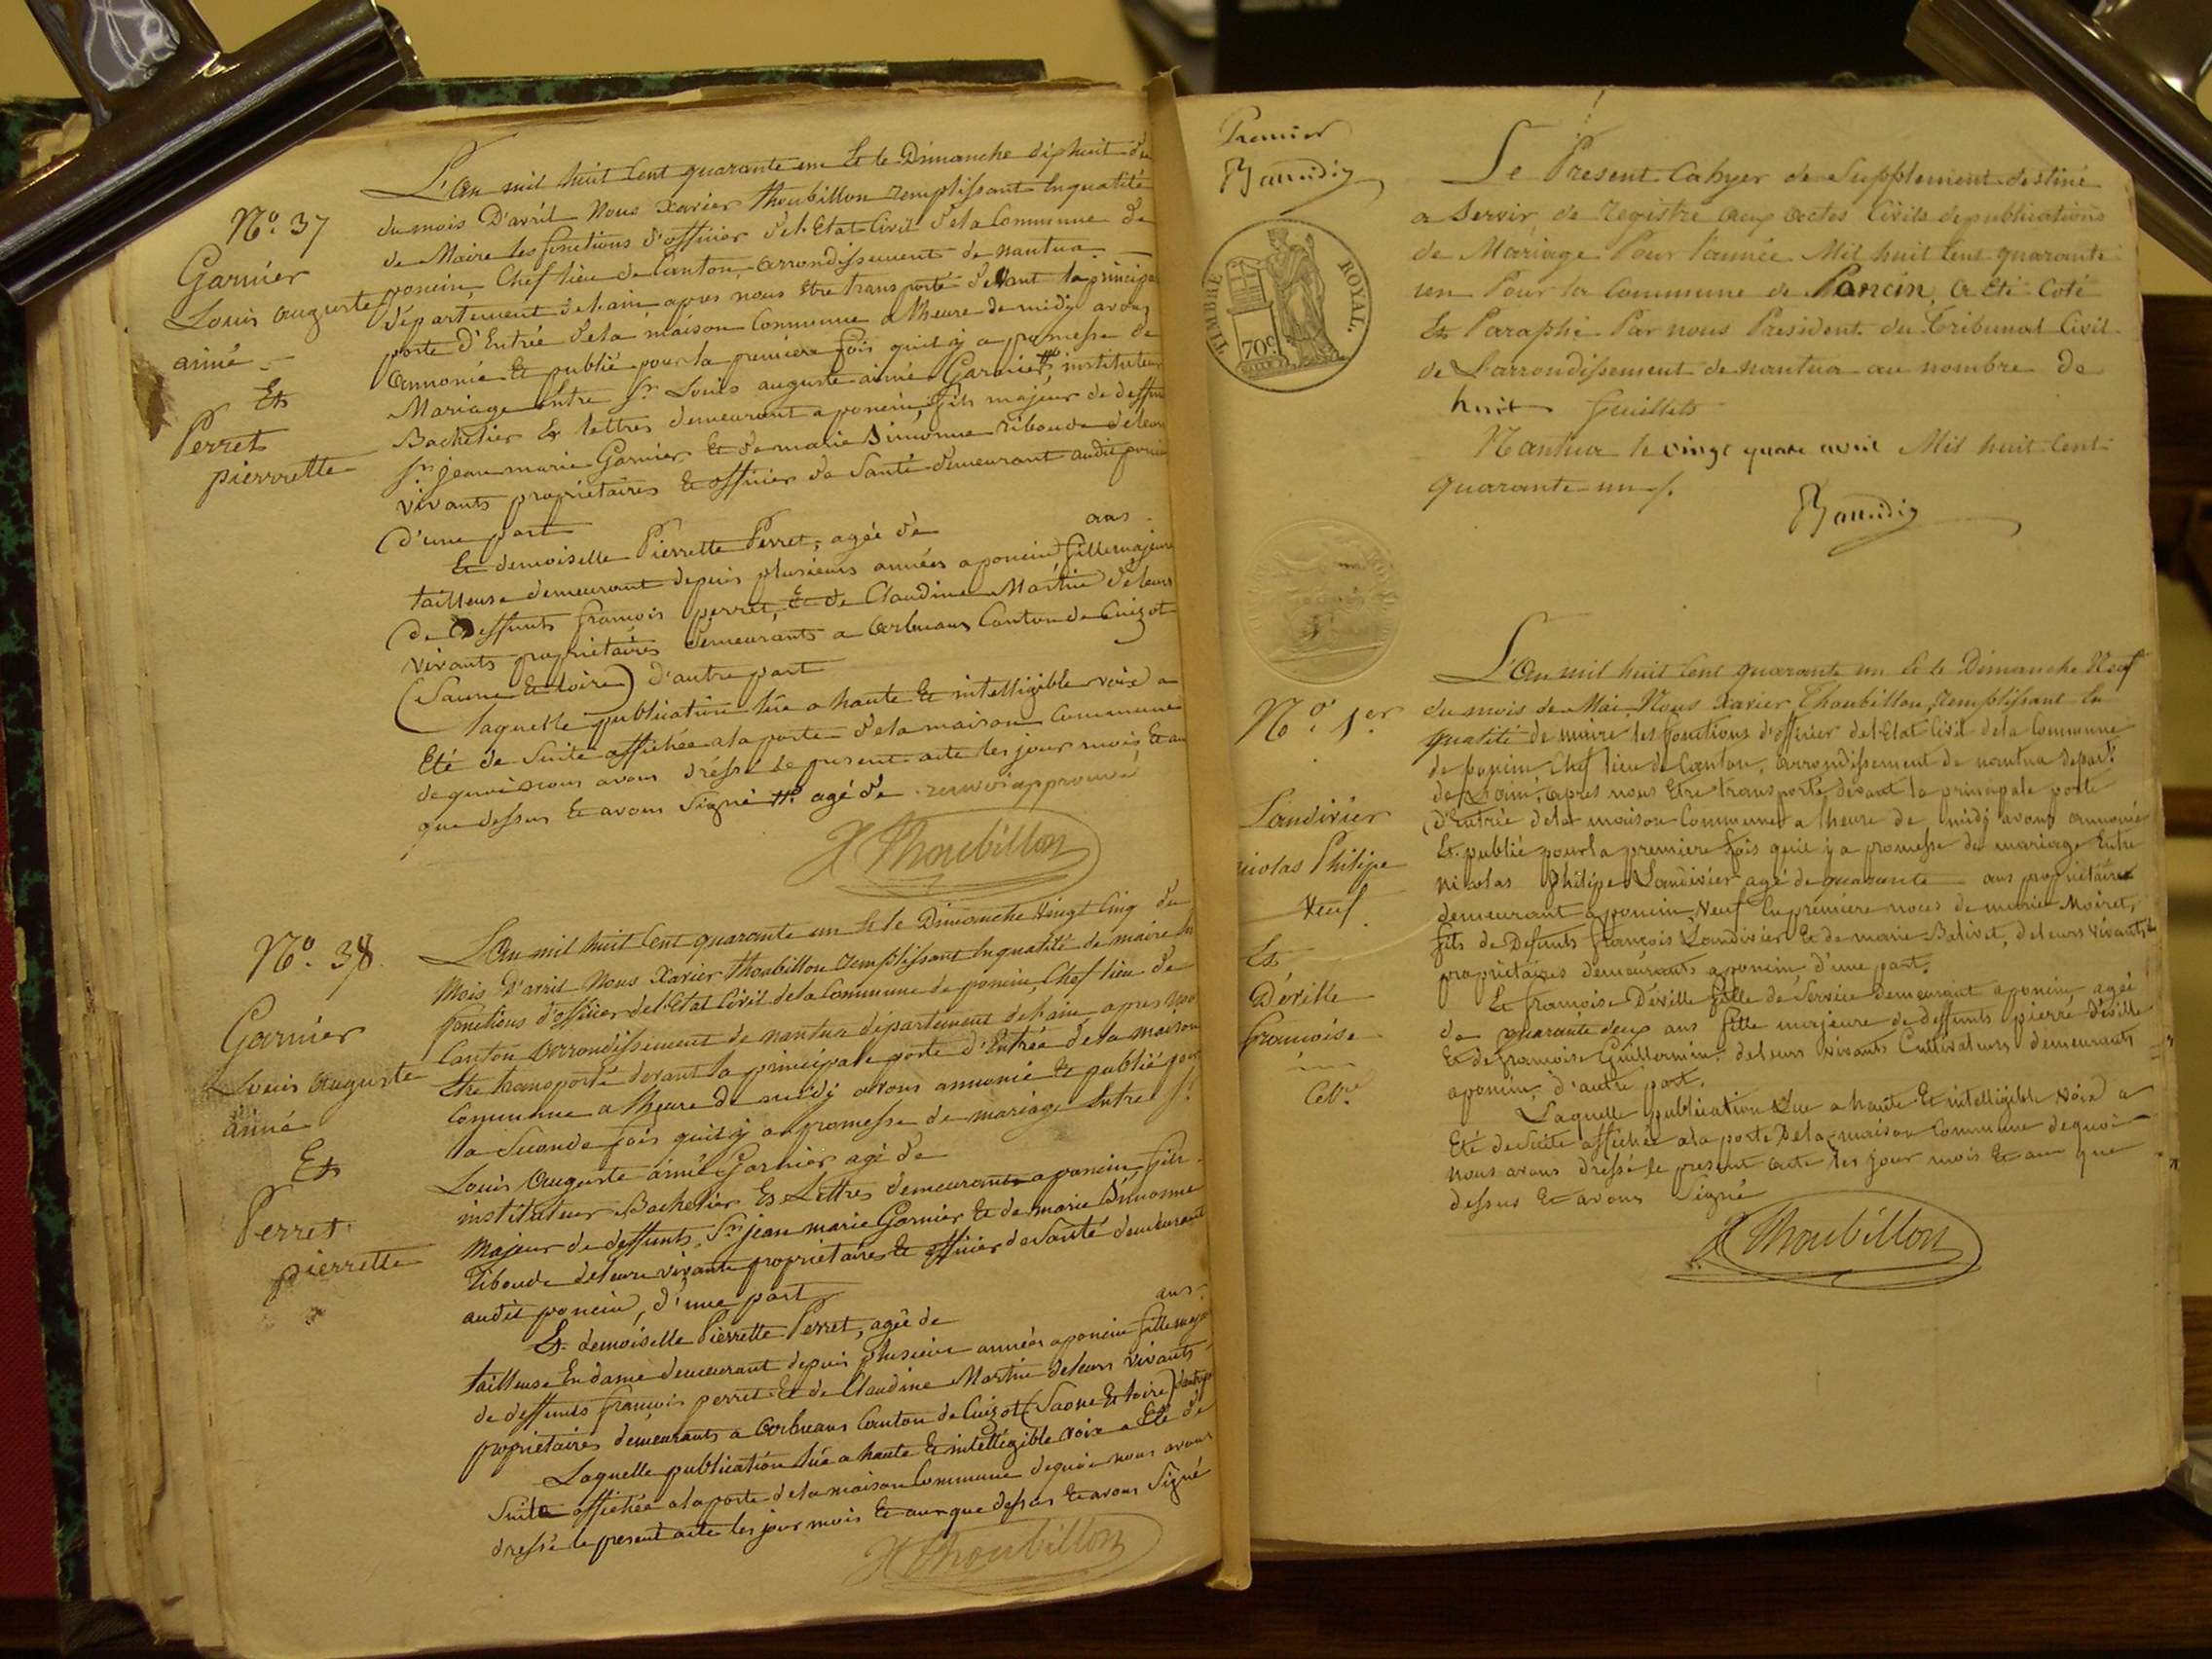 N.º 37
Garnier
Louis auguste
aimé
Et
Perret
pierrette
L'an mil huit Cent quarante un Et le Dimanche dix huit du
du mois D'avril Nous Xavier Thoubillon remplissant Enqualité
de Maire les fonctions d'officier del'Etat Civil dela Commune de
poncin, Chef lieu de Canton, arrondissement de nantua
département del'ain apres nous Etre transporté devant la principale
porte d'Entrée dela maison Commune a l'heure de midy avons
annoncé Et publié pour la premiere fois quil y a promesse de
Mariage Entre Sr. Louis auguste aimé Garnier, instituteur
Bachelier Es lettres demeurant a poncin, fils majeur de deffun
Sr. jean marie Garnier, Et de marie Simonne riboud deleur
vivants propriétaires Et officier de Santé demeurant audit poncin
d'une part
Et demoiselle Pierrette Perret, agée de ans
tailleuse demeurant depuis plusieurs années a poncin fille majeure
de Deffunts françois perret, Et de Claudine Martin deleurs
vivants propriétaires demeurants a Canton de Cuizot
(Saune Et loire) d'autre part
laquelle publication lue a haute Et intelligible voix a
Eté de Suite affichée ala porte dela maison Commune
dequoi nous avons dréssé le present acte les jour mois Et an
que dessus Et avons Signé agé de renvoi approuvé
X Thoubillon
N.º 38
Garnier
Louis auguste
aimé
Et
Perret
pierrette
L'an mil huit Cent quarante un Et le Dimanche Vingt Cinq du
Mois D'avril Nous Xavier Thoubillon remplissant Enqualité de maire les
fonctions d'officier del'Etat Civil dela Commune de poncin, Chef lieu de
Canton arrondissement de nantua département del'ain apres nous
Etre transporté devant la principale porte d'Entrée dela maison
Commune a l'heure de midy avons annoncé Et publié pour
la Seconde fois quil y a promesse de mariage Entre Sr.
Louis Auguste aimé Garnier agé de
instituteur Bachelier Es Lettres demeurant a poncin fils
Majeur de deffunts Sr. jean marie Garnier Et de marie Simonne
Riboud deleurs vivants propriétaires Et officier de Santé demeurant
audit poncin, d'une part
Et demoiselle Pierrette Perret, agée de ans
tailleuse En dame demeurant depuis plusieurs années a poncin fille maj
de deffunts françois perret Et de Claudine Martin deleurs vivants
propriétaires demeurants a Canton de Cuizot (Saone Et loire)
Laquelle publication lue a haute Et intelligible voix a Eté de
Suite affichée ala porte dela maison Commune dequoi nous avons
dressé le present acte les jour mois Et an que dessus Et avons Signé
X Thoubillon
Premier
TIMBRE ROYAL.
70c.
Le Present Cahyer de Supplement destiné
a Servir de registre aux actes Civils de publications
de Mariage Pour l'année Mil huit Cent quarante
un Pour la Commune de Poncin, a Eté Coté
Et Paraphé Par nous President du Tribunal Civil
de L'arrondissement de nantua au nombre De
huit feuillets
Nantua le vingt quatre avril Mil huit Cent
quarante un
N.º 1.er
Landivier
nicolas Philipe
Veuf
Et
Déville
françoise
L'An mil huit Cent quarante un Et le Dimanche Neuf
du mois de Mai, Nous Xavier Thoubillon, remplissant En
qualité de maire les fonctions d'officier del'Etat Civil dela Commune
de poncin, Chef lieu de Canton, arrondissement de nantua depart.
de L'ain, apres nous Etre transporté devant la principale porte
d'Entrée dela maison Commune a l'heure de midy avons annoncé
Et publié pour la premiere fois quil y a promesse de mariage Entre
Nicolas Philipe Landivier, agé de quarante ans propriétaire
demeurant a poncin, Veuf En premiere noces de marie Moiret,
fils de Defunts françois Landivier Et de marie Balivet, deleurs vivants
propriétaires demeurants a poncin, d'une part.
Et françoise Déville fille de Service demeurant a poncin, agée
de quarante deux ans fille majeure de deffunts pierre déville
Et de françoise Guillermin, deleurs vivants Cultivateurs demeurants
a poncin, d'autre part.
Laquelle publication Lue a haute Et intelligible voix a
Eté de Suite affichée ala porte Dela maison Commune dequoi
nous avons dréssé le present acte les jour mois Et an que
dessus Et avons Signé
X Thoubillon